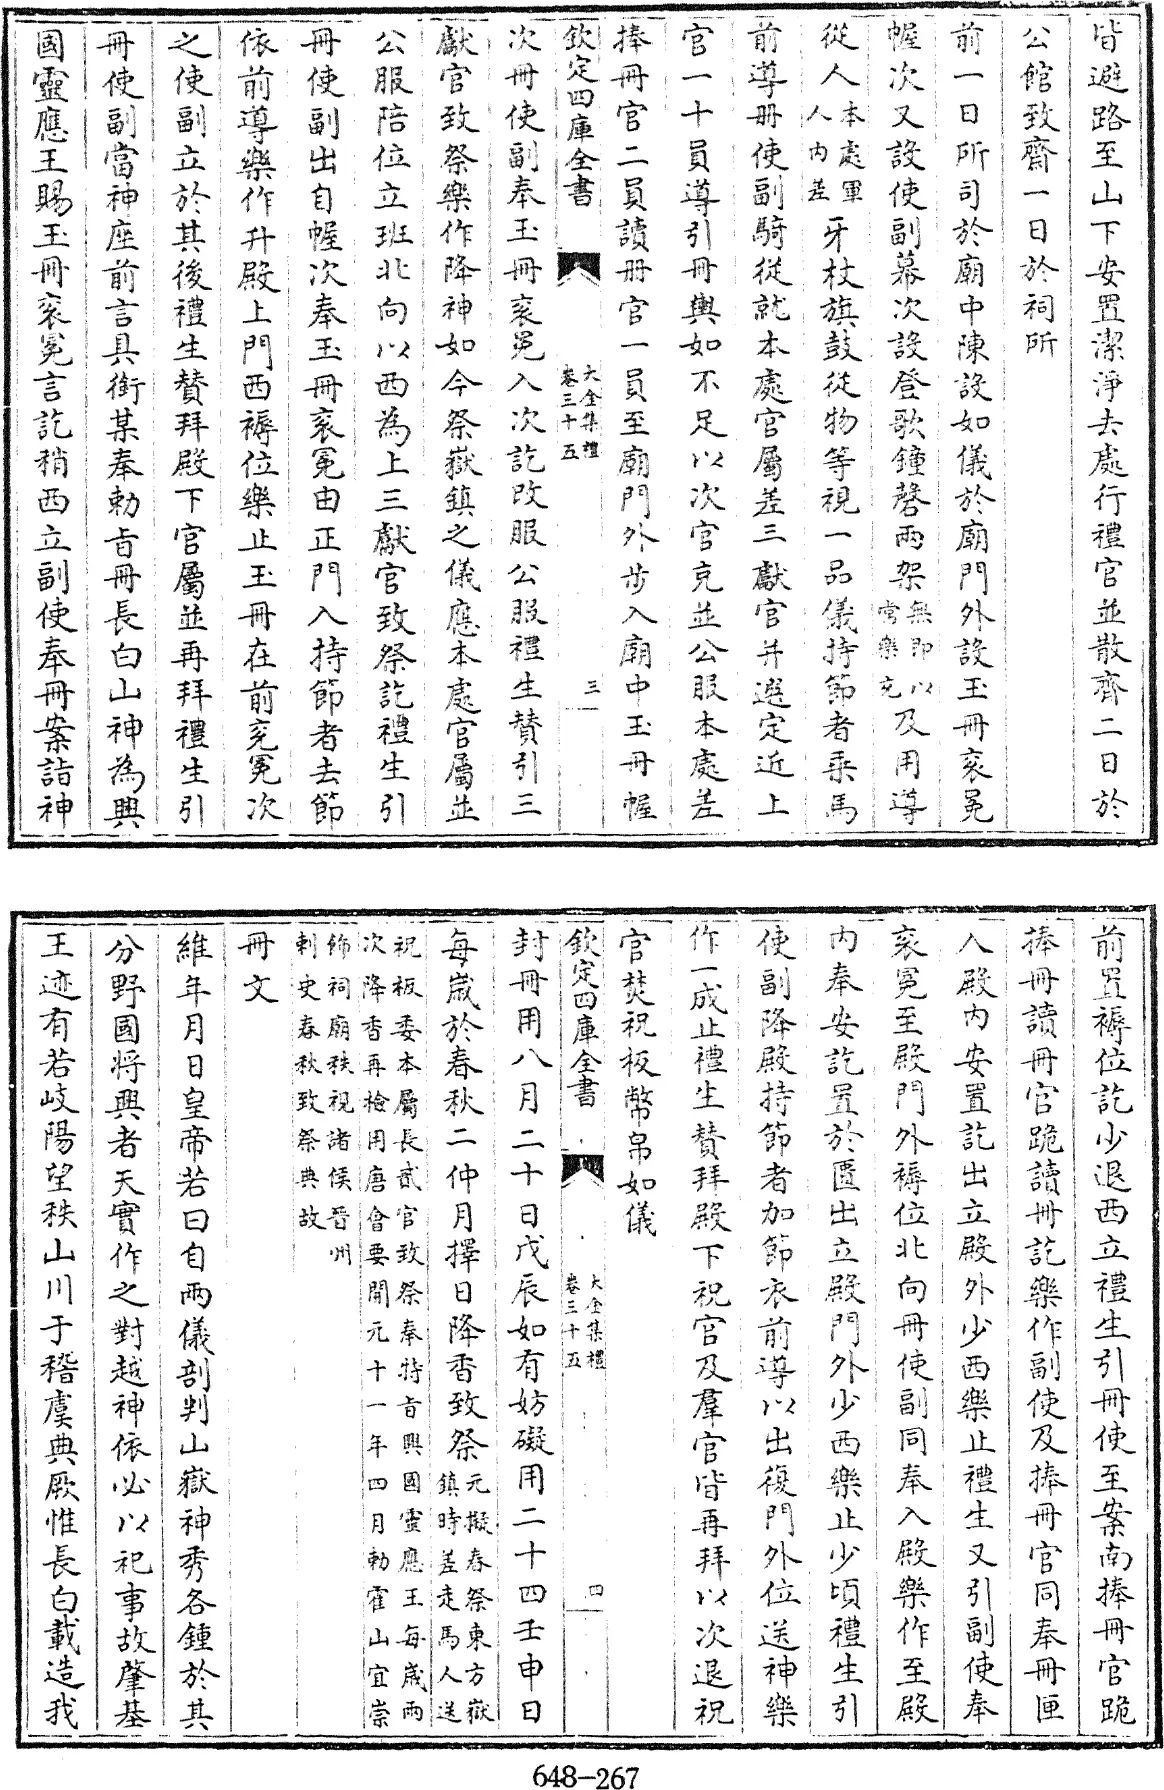 皆避路至山下安置潔淨去處行禮官並散齊二日於
公館致齋一日於祠所
前一日所司於廟中陳設如儀於廟門外設玉冊衮冕
幄次又設使副幕次設登歌鐘磬兩架無即以常樂充及用導
從人本處軍人內差牙杖旗鼓從物等視一品儀持節者乘馬
前導冊使副騎從就本處官屬差三獻官并選定近上
官一十員導引冊輿如不足以次官充並公服本處差
捧冊官二員讀冊官一員至廟門外步入廟中玉冊幄
欽定四庫全書
大金集禮
卷三十五
三
次冊使副奉玉冊衮冕入次訖改服公服禮生贊引三
獻官致祭樂作降神如今祭嶽鎮之儀應本處官屬並
公服陪位立班北向以西為上三獻官致祭訖禮生引
冊使副出自幄次奉玉冊衮冕由正門入持節者去節
依前導樂作升殿上門西褥位樂止玉冊在前兖冕次
之使副立於其後禮生贊拜殿下官屬並再拜禮生引
冊使副當神座前言具銜某奉勅旨冊長白山神為興
國靈應王賜玉冊衮冕言訖稍西立副使奉冊案詣神
前置褥位訖少退西立禮生引冊使至案南捧冊官跪
捧冊讀冊官跪讀冊訖樂作副使及捧冊官同奉冊匣
入殿內安置訖出立殿外少西樂止禮生又引副使奉
衮冕至殿門外褥位北向冊使副同奉入殿樂作至殿
內奉安訖置於匱出立殿門外少西樂止少頃禮生引
使副降殿持節者加節衣前導以出復門外位送神樂
作一成止禮生贊拜殿下祝官及羣官皆再拜以次退祝
官焚祝板幣帛如儀
欽定四庫全書
大金集禮
卷三十五
四
封冊用八月二十日戊辰如有妨礙用二十四壬申日
每歲於春秋二仲月擇日降香致祭元擬春祭東方嶽鎮時差走馬人送
祝板委本屬長貳官致祭奉特旨興國靈應王每歲兩
次降香再檢用唐會要開元十一年四月勅霍山宜崇
飾祠廟秩視諸侯晉州
刺史春秋致祭典故
冊文
維年月日皇帝若曰自兩儀剖判山嶽神秀各鍾於其
分野國將興者天實作之對越神依必以祀事故肇基
王迹有若岐陽望秩山川于稽虞典厥惟長白載造我
648-267